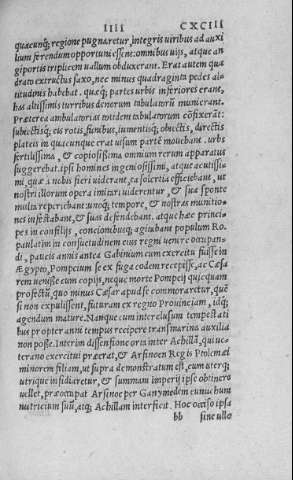 IIII CXCIII
quacunq; regione pugnaretur, integris uiribus ad auxi
lium ferendum opportuni essent: omnibus uijs, atque an
giportis triplicem uallum obduxerant. Erat autem qua
drato extructus saxo, nec minus quadraginta pedes al-
titudinis habebat. quæq; partes urbis inferiores erant,
has altissimis turribus denorum tabulatorũ munierant.
Præterea ambulatorias totidem tabulatorum cõfixerãt:
subiectisq; eis rotis, funibus, iumentisq; obiectis, directis
plateis in quacunque erat uisum partẽ mouebant. urbs
fertilissima, & copiosissima omnium rerum apparatus
suggerebat. ipsi homines ingeniosissimi, atque acutissi-
mi, quæ à nobis fieri uiderant, ea solertia efficiebant, ut
nostri illorum opera imitari uiderentur, & sua sponte
multa reperiebant: unoq; tempore, & nostras munitio-
nes infestabant, & suas defendebant. atque hæc princi-
pes in consilijs, concionibusq; agitabant populum Ro.
paulatim in consuetudinem eius regni uenire occupan-
di, paucis annis antea Gabinium cum exercitu fuisse in
Aegypto, Pompeium se ex fuga eodem recepisse, ac Cæsa
rem uenisse cum copijs, neque morte Pompeij quicquam
profectũ, quo minus Cæsar apud se commoraretur, quẽ
si non expulissent, futuram ex regno Prouinciam, idq;
agendum mature. Nanque eum interclusum tempestati
bus propter anni tempus recipere transmarina auxilia
non posse. Interim dissensione orta inter Achillã, qui ue-
terano exercitui præerat, & Arsinoen Regis Ptolemæi
minorem filiam, ut supra demonstratum est, cum uterq;
utrique insidiaretur, & summam imperij ipse obtinere
uellet, præoccupat Arsinoe per Ganymedem eunuchum
nutricium suũ, atq; Achillam interficit. Hoc occiso ipsa
bb sine ullo